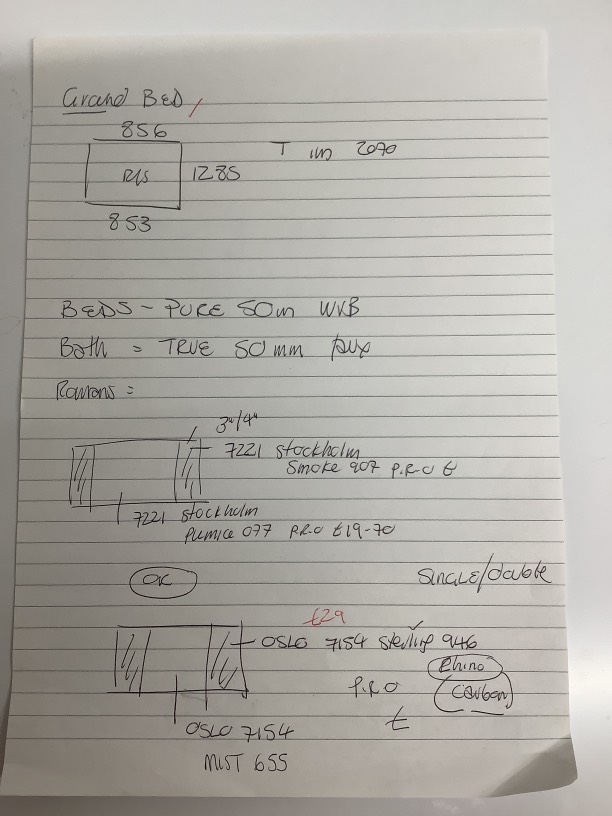 Grand BED
856
T in 2070
R/S
1285
853
BEDS - PURE 50m WVB
Bath = TRUE 50mm faux
Romans =
3"/4"
7221 Stockholm
Smoke 907 P.R.O £
7221 Stockholm
Pumice 077 P.R.O £19-70
OK
SINGLE/double
£29
OSLO 7154 Sterling 946
Rhino
P.R.O
Carbon
£
OSLO 7154
MIST 655